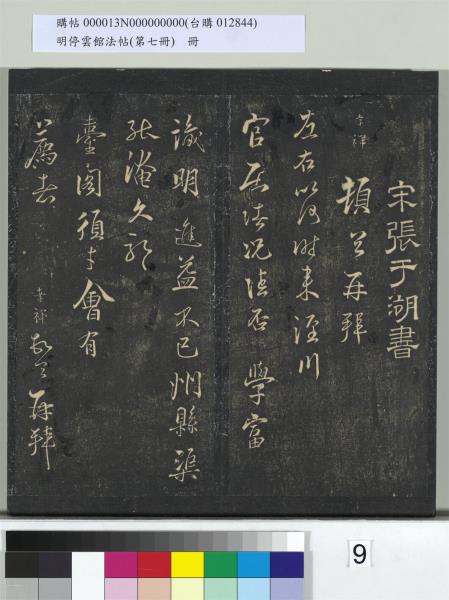 購帖 000013N000000000(台購 012844)
明停雲館法帖(第七冊) 冊
宋張于湖書
孝祥
頓首再拜
左右以何時來涇川
官居情況佳否 學富
識明 進益不已州縣渠
能淹久耶
臺閣須才會有
以薦者 孝祥 頓首再拜
9